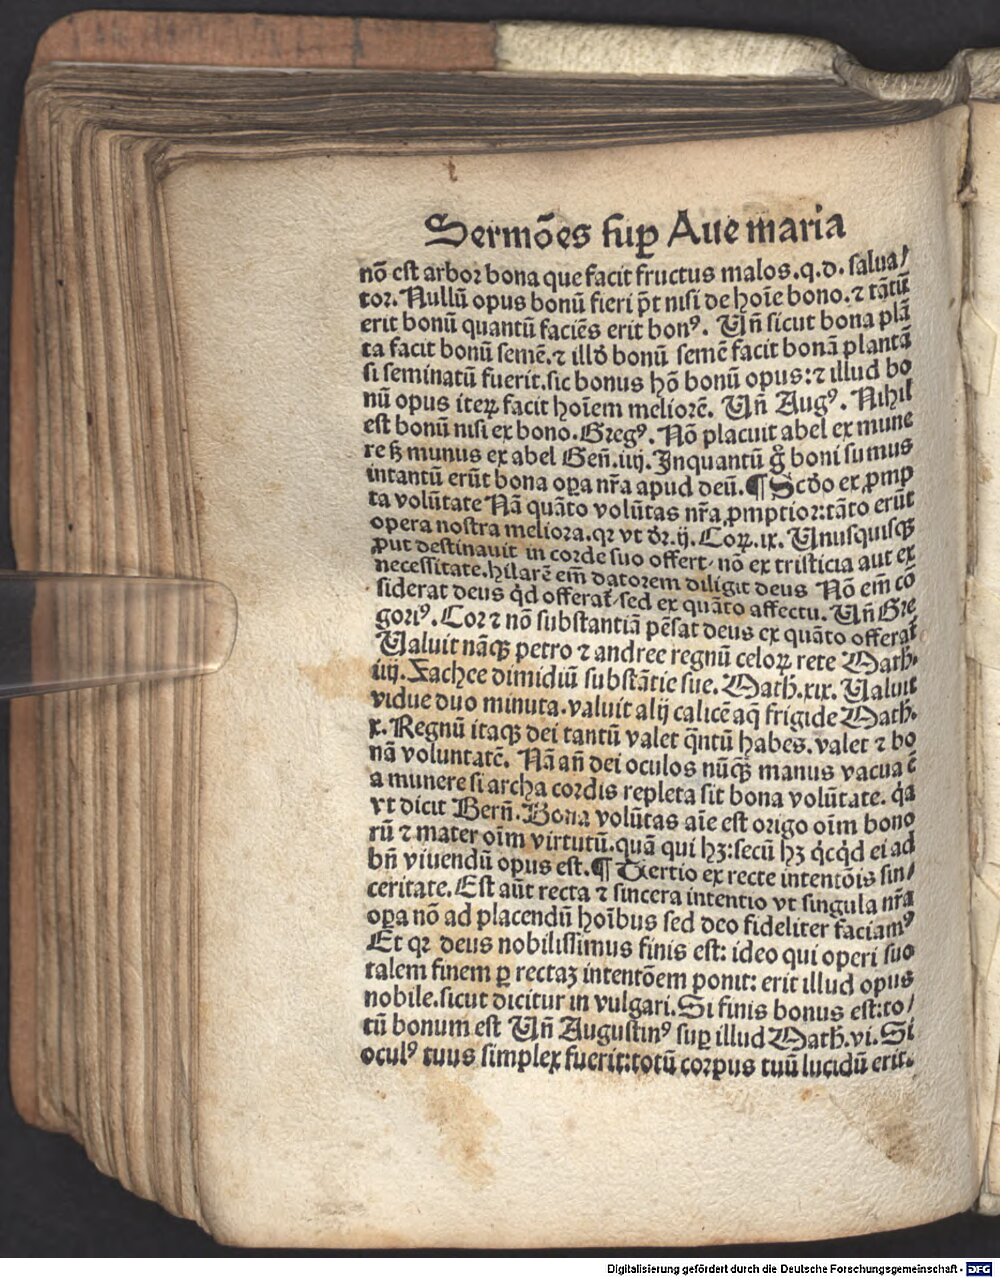 Sermões sup Aue maria
nō est arbor bona que facit fructus malos.q.d. salua/
tor. Nullū opus bonū fieri p̄t nisi de hoīe bono.⁊ tātū
erit bonū quantū faciēs erit bonꝰ. Un̄ sicut bona plā
ta facit bonū semē.⁊ illd̄ bonū semē facit bonā plantā
si seminatū fuerit.sic bonus hō bonū opus:⁊ illud bo
nū opus iteꝝ facit hoīem meliorē. Un̄ Augꝰ. Nihil
est bonū nisi ex bono. Gregꝰ. Nō placuit abel ex mune
re sꝫ munus ex abel Geñ.iiij. Inquantū g̊ boni sumus
intantū erūt bona oꝑa nr̄a apud deū.¶ Scd̄o ex ꝓmp
ta volūtate Nā quāto volūtas nr̄a ꝓmptior:tāto erūt
opera nostra meliora.qꝛ vt dr̄.ij. Coꝝ.ix. Unusquisqꝫ
ꝓut destinauit in corde suo offert/ nō ex tristicia aut ex
necessitate.hilarē em̄ datorem diligit deus Nō em̄ cō
siderat deus qd̄ offerat/sed ex quāto affectu. Un̄ Gre
goriꝰ. Cor ⁊ nō substantiā pēsat deus ex quāto offerat
Ualuit nāqꝫ petro ⁊ andree regnū celoꝝ rete Math.
iiij. Zachee dimidiū substātie sue. Math.xix. Ualuit
vidue duo minuta.valuit alij calicē aq̄ frigide Math.
x. Regnū itaqꝫ dei tantū valet q̄ntū habes.valet ⁊ bo
nā voluntatē. Nā añ dei oculos nūqꝫ manus vacua ē
a munere si archa cordis repleta sit bona volūtate. q̇a
vt dicit Berñ. Bona volūtas aīe est origo oīm bono
rū ⁊ mater oīm virtutū.quā qui hꝫ:secū hꝫ q̇cq̇d ei ad
bñ viuendū opus est.¶ Tertio ex recte intentōis sin/
ceritate. Est aūt recta ⁊ sincera intentio vt singula nr̄a
oꝑa nō ad placendū hoībus sed deo fideliter faciamꝰ
Et qꝛ deus nobilissimus finis est: ideo qui operi suo
talem finem ꝑ rectaꝫ intentōem ponit: erit illud opus
nobile.sicut dicitur in vulgari. Si finis bonus est:to/
tū bonum est Un̄ Augustinꝰ suꝑ illud Math.vi. Si
oculꝰ tuus simplex fuerit:totū corpus tuū lucidū erit.
Digitalisierung gefördert durch die Deutsche Forschungsgemeinschaft - DFG